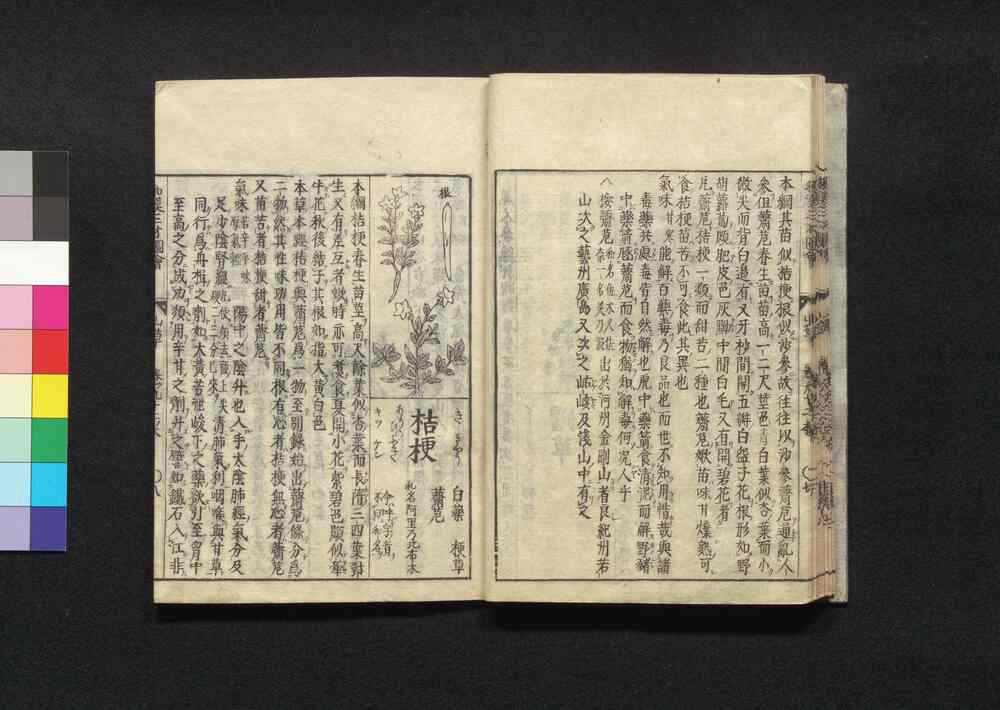 本綱其苗似桔梗根似沙參故往往以沙參薺苨通亂人
參但薺苨春生苗苗高一二尺莖色青白葉似杏葉而小
微尖而背白邊有叉牙杪間開五瓣白盌子花根形如野
胡蘿蔔頗肥皮色灰黲中間白毛又有開碧花者
苨薺苨桔梗一類而甜苦二種也薺苨嫩苗味甘煠熟可
食桔梗苗苦不可食此其異也
氣味甘寒能解百藥毒乃良品也而世不知用惜哉與諸
毒藥共處毒皆自然解也虎中藥箭食清泥而解野豬
中藥箭豗薺苨而食物猶知解毒何況人乎
按薺苨出於河州金剛山者良紀州若
山次之藝州廣島又次之山岐及筏山中有之
根
桔梗
ききやう
キツ ケン
白藥 梗草
薺苨
和名阿里乃比布木
本綱桔梗春生苗莖高尺餘葉似杏葉而長隋三四葉對
生又有差互者嫩時亦可煮食夏開小花紫碧色頗似牽
牛花秋後結子其根如指大黃白色
本草本經桔梗與薺苨爲一物至別錄始出薺苨條分爲
二物然其性味功用皆不同根有心者桔梗無心者薺苨
又苗苦者桔梗甜者薺苨
氣味苦辛平 陽中之陰升也入手太陰肺經氣分及
足少陰腎經 淸肺氣利咽喉與甘草
同行爲舟楫之劑如大黃苦泄峻下之藥欲引至胷中
至高之分成功須用辛甘之劑升之譬如鐵石入江非